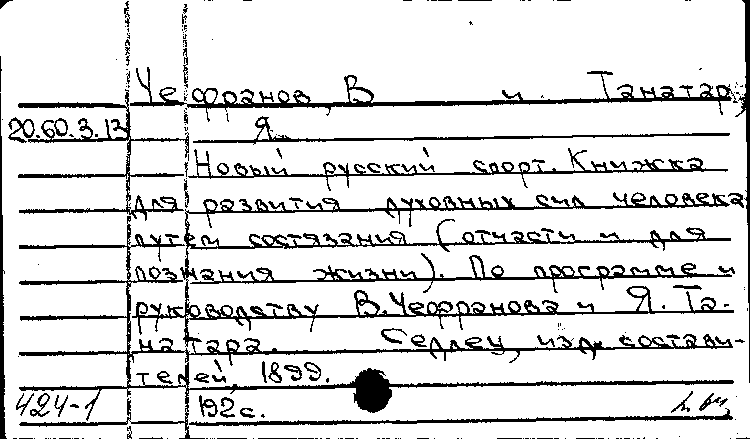 Чефранов, В и Танатар,
20.60.3.13 Я.
Новый русский спорт. Книжка
для развития духовных сил человека
путем состязания (отчасти и для
познания жизни). По программе и
руководству В.Чефранова и Я. Та-
натара. Седлец, изд. состави-
телей, 1899.
424-1 192с.